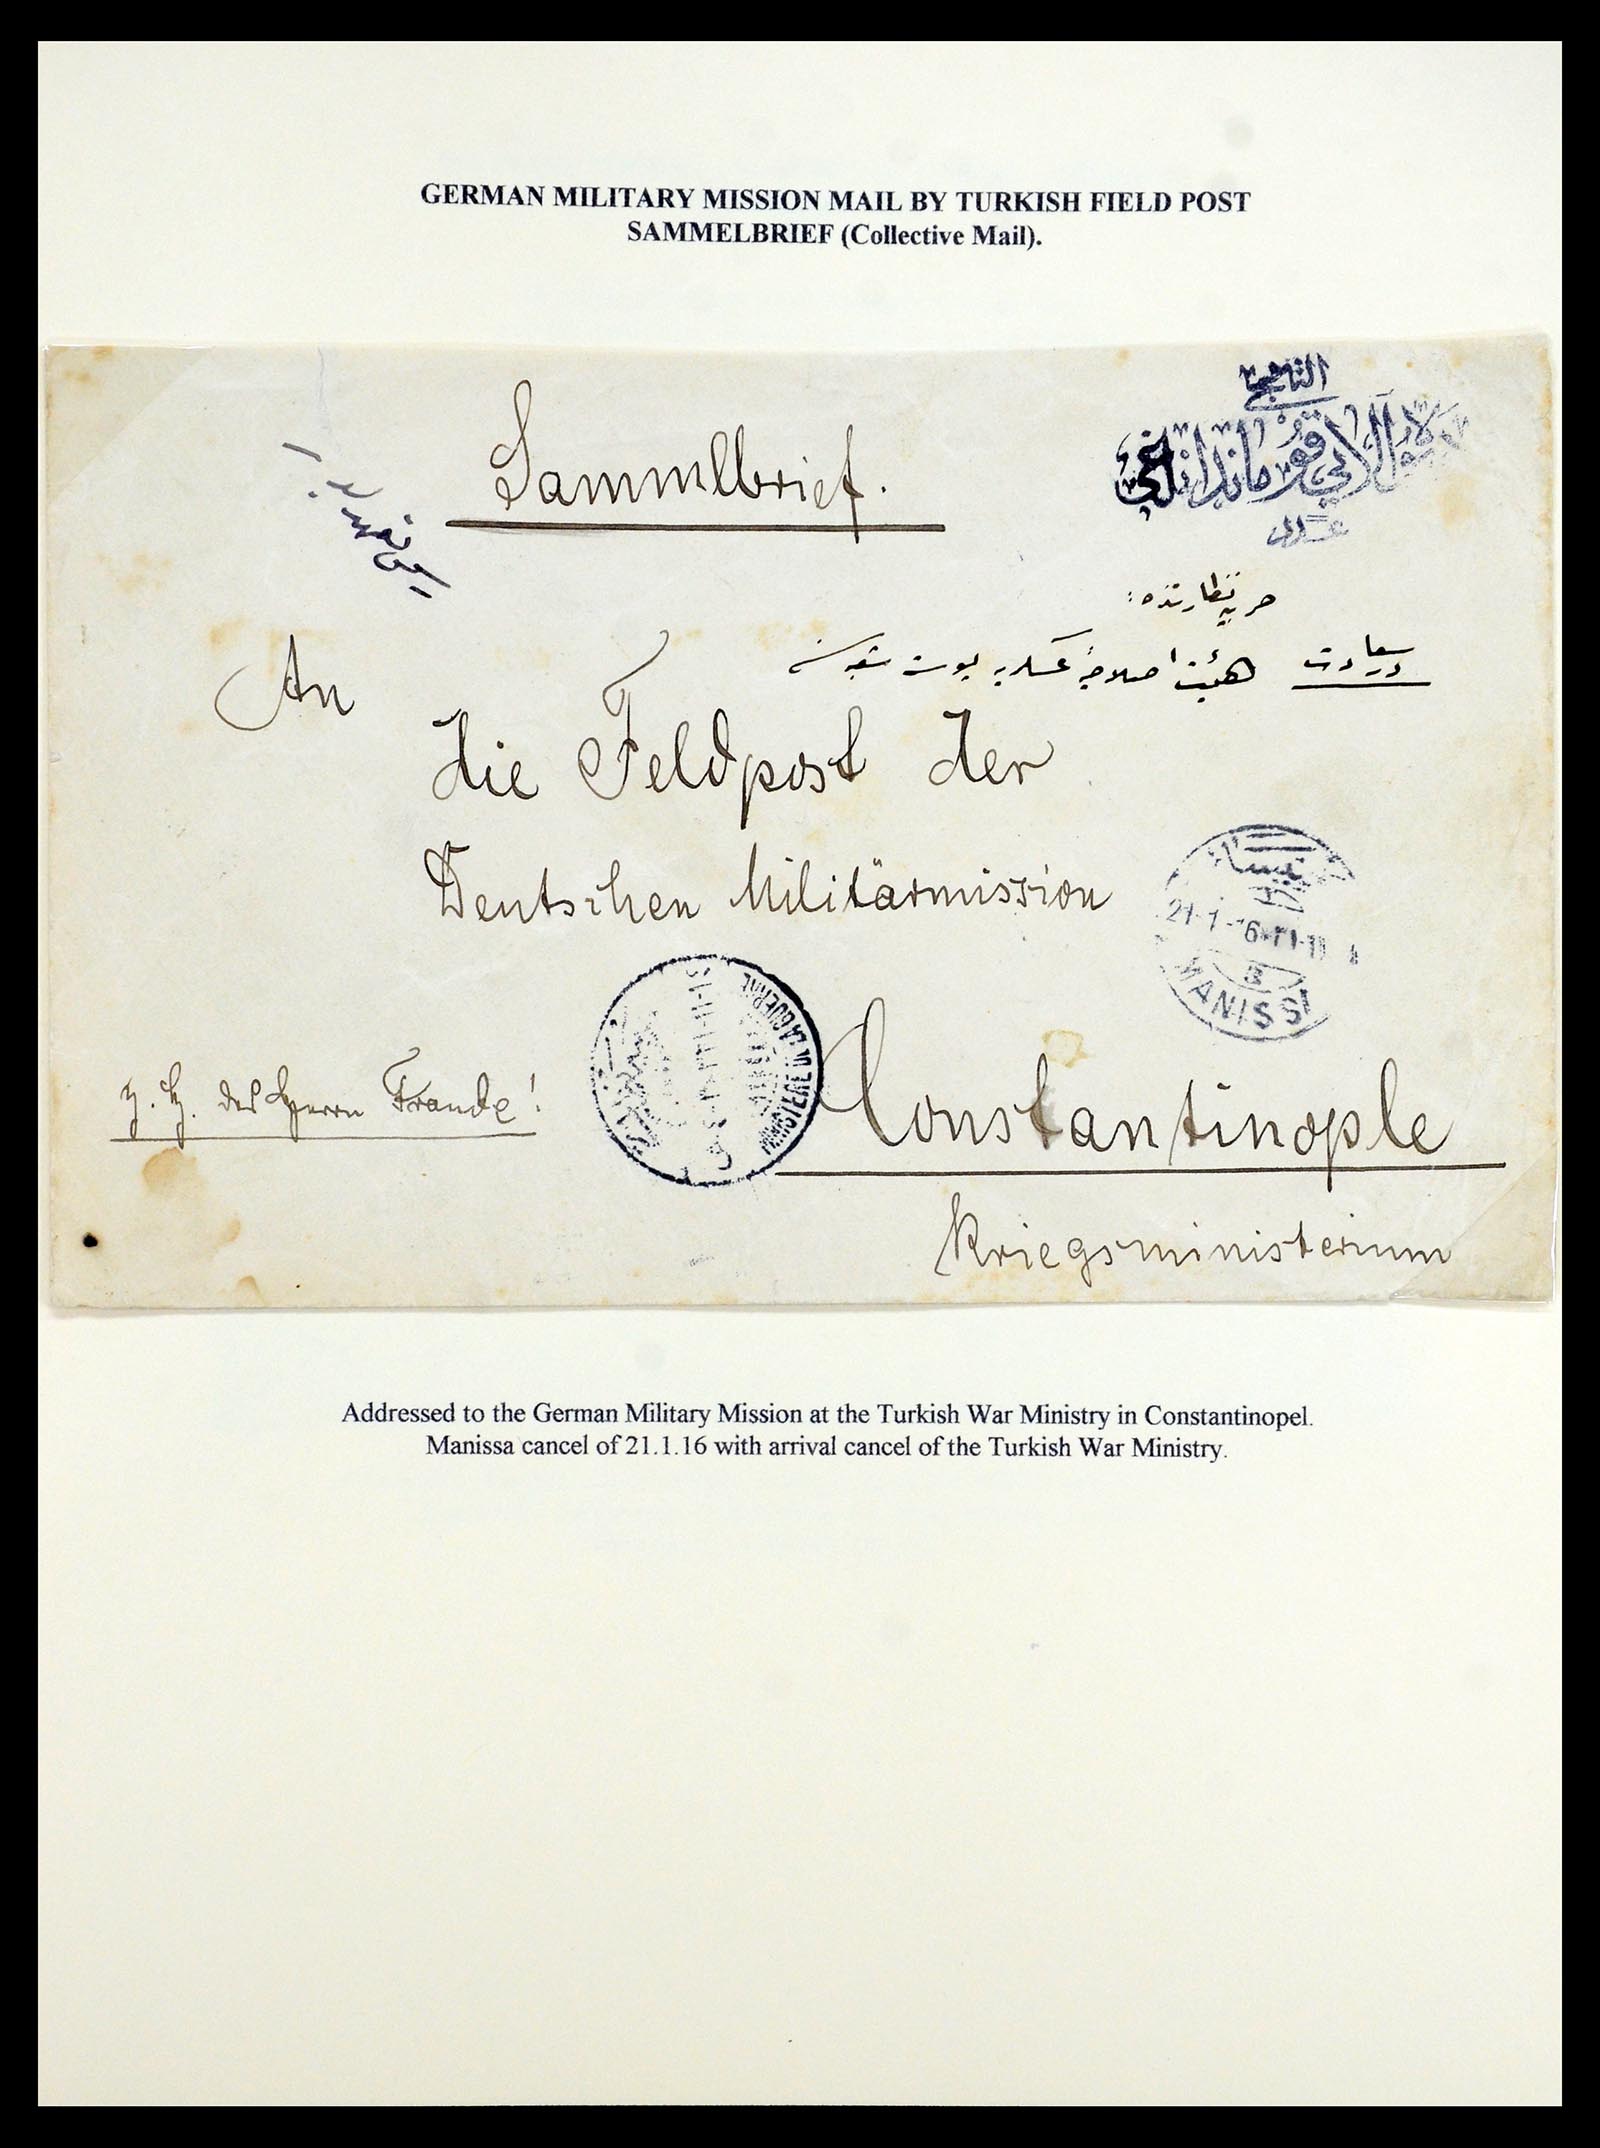 GERMAN MILITARY MISSION MAIL BY TURKISH FIELD POST
SAMMELBRIEF (Collective Mail).
Sammelbrief.
حربيه نظارتنده :
درسعادت هيئت اصلاحيه عسكريه پوسته شعبه سنه
An
die Feldpost der
Deutschen Militärmission
21-1-16
MANISSA
MINISTERE DE LA GUERRE
z. H. des Herrn Francke!
Constantinople
Kriegsministerium
Addressed to the German Military Mission at the Turkish War Ministry in Constantinopel.
Manissa cancel of 21.1.16 with arrival cancel of the Turkish War Ministry.